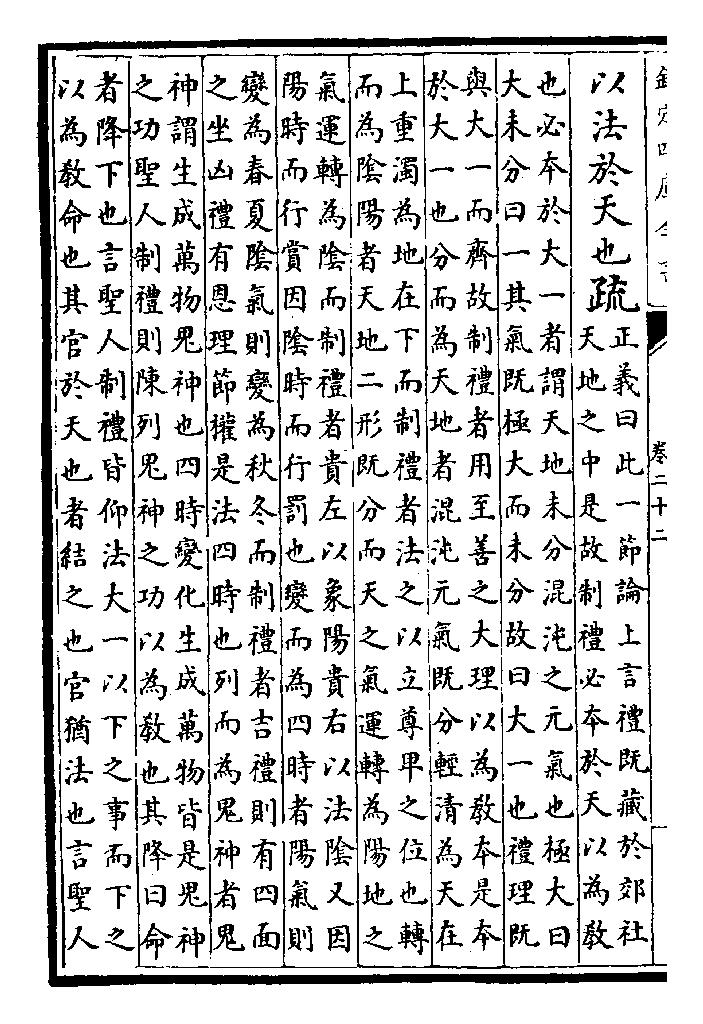 欽定四庫全書
卷二十二
以法於天也疏
正義曰此一節論上言禮既藏於郊社
天地之中是故制禮必本於天以為教
也必本於大一者謂天地未分混沌之元氣也極大曰
大未分曰一其氣既極大而未分故曰大一也禮理既
與大一而齊故制禮者用至善之大理以為教本是本
於大一也分而為天地者混沌元氣既分輕清為天在
上重濁為地在下而制禮者法之以立尊卑之位也轉
而為陰陽者天地二形既分而天之氣運轉為陽地之
氣運轉為陰而制禮者貴左以象陽貴右以法陰又因
陽時而行賞因陰時而行罰也變而為四時者陽氣則
變為春夏陰氣則變為秋冬而制禮者吉禮則有四面
之坐凶禮有恩理節權是法四時也列而為鬼神者鬼
神謂生成萬物鬼神也四時變化生成萬物皆是鬼神
之功聖人制禮則陳列鬼神之功以為教也其降曰命
者降下也言聖人制禮皆仰法大一以下之事而下之
以為教命也其官於天也者結之也官猶法也言聖人